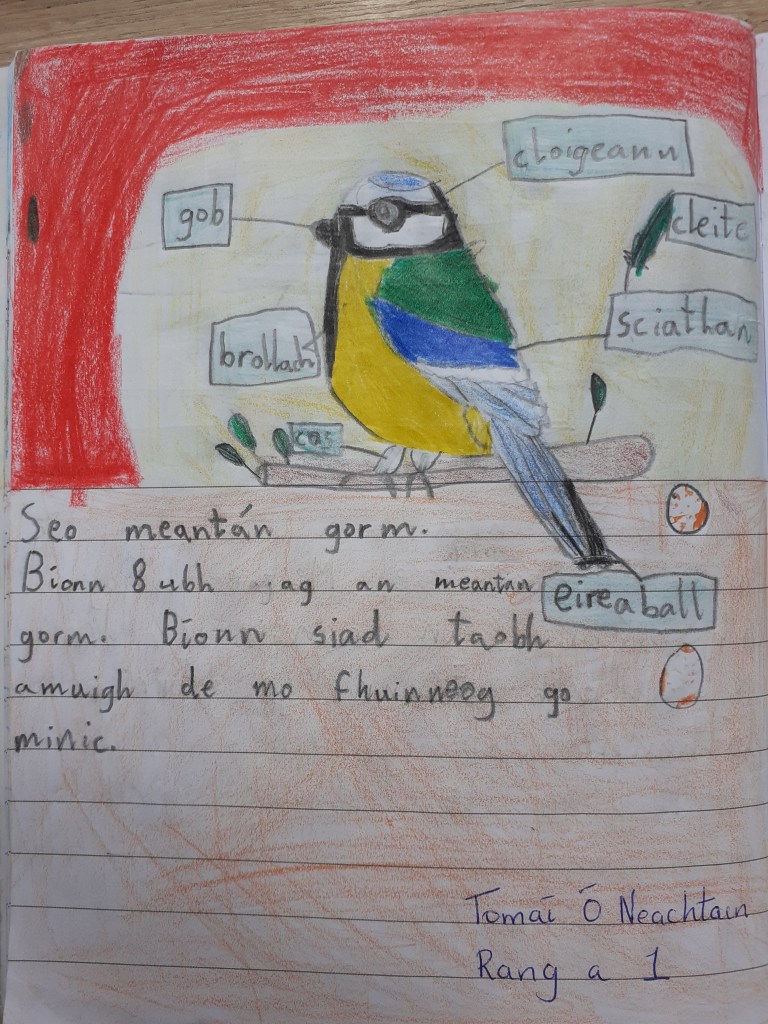 cloigeann
gob
cleite
sciathan
brollach
cos
Seo meantán gorm.
Bíonn 8 ubh ag an meantan
eireaball
gorm. Bíonn siad taobh
amuigh de mo fhuinneog go
minic.
Tomaí Ó Neachtain
Rang a 1